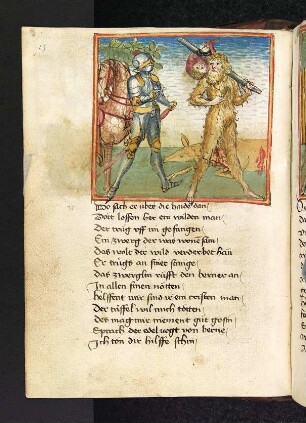 Do sach er über die haide dan
Dort loffen her ein wilden man
Der trüg uff im gefangen
Ein zwerg der was wone sam
Das wolt der wild verderbet han
Er trügs an siner stange
Das zwerglin rüfft den berner an
In allen sinen nötten
helffent mir sind ir ein cristen man
Der tüffel wil mich tötten
des mag mir niement güt gesin
Sprach der edel vogt von berne
Ich ton dir hilffe schin